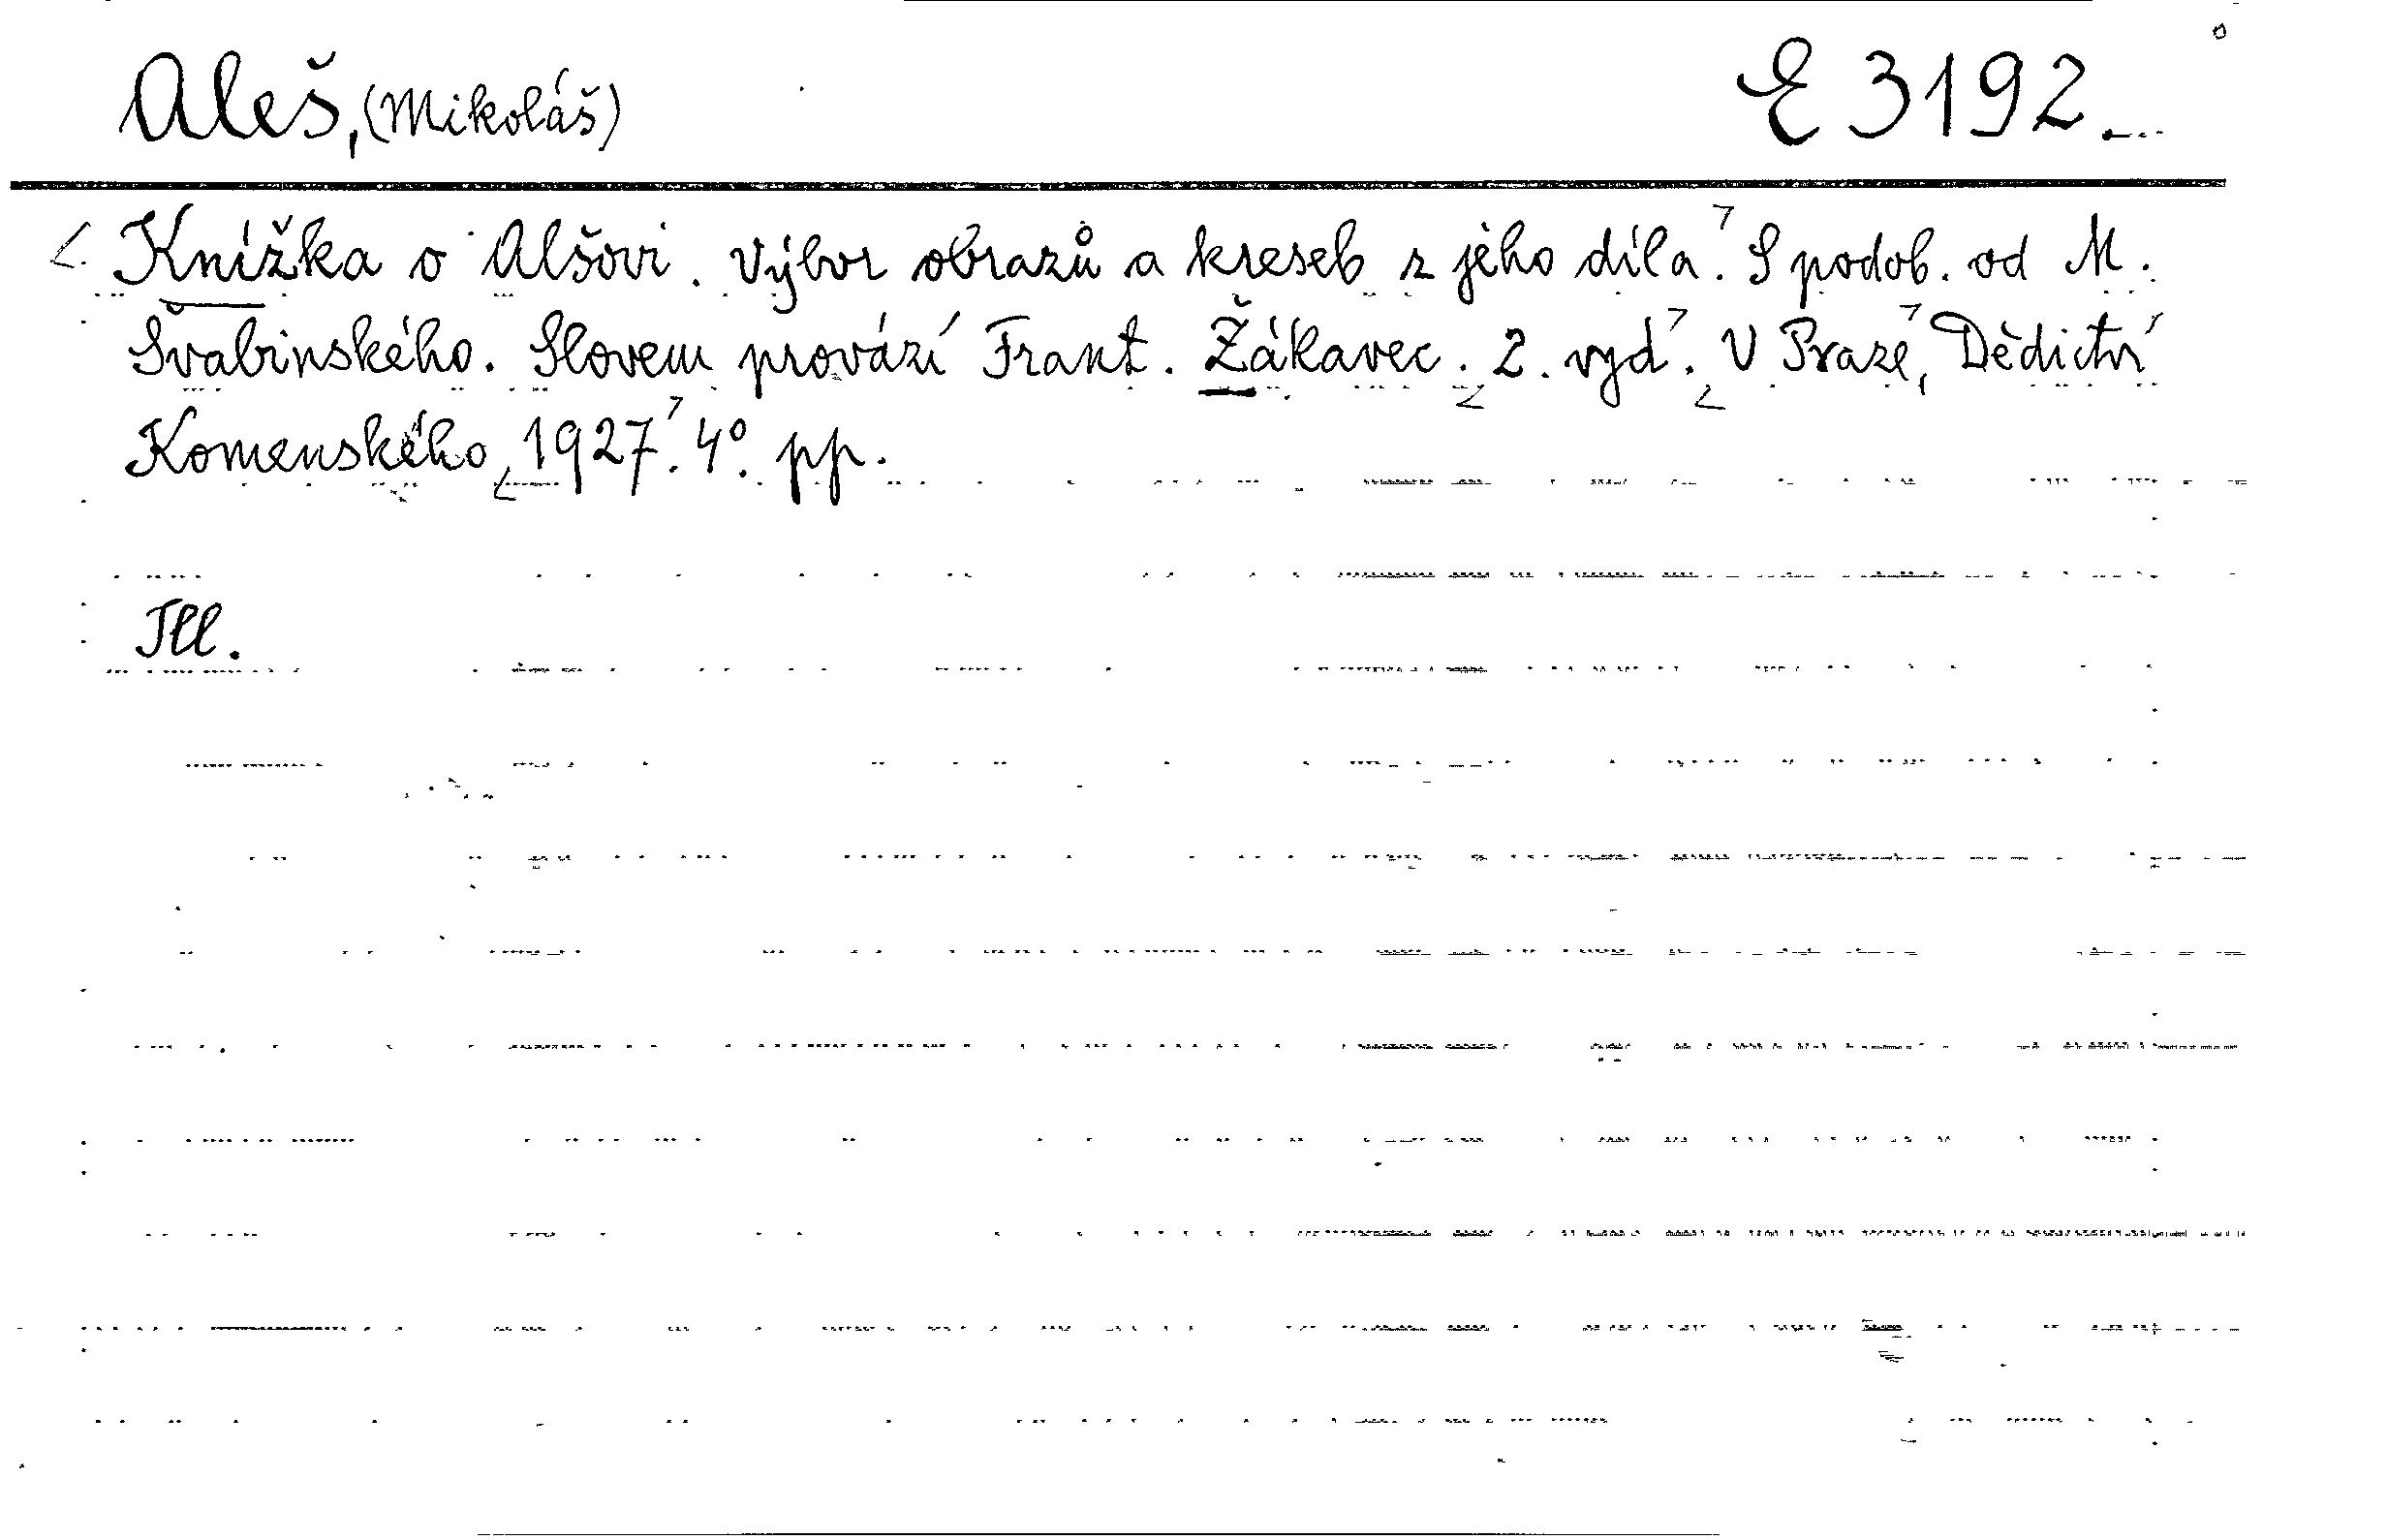 Aleš, (Mikoláš) E 3192
Knížka o Alšovi. Výbor obrazů a kreseb z jeho díla. S podob. od M.
Švabinského. Slovem provází Frant. Žákavec. 2. vyd. V Praze, Dědictví
Komenského, 1927. 4°. pp.
Ill.